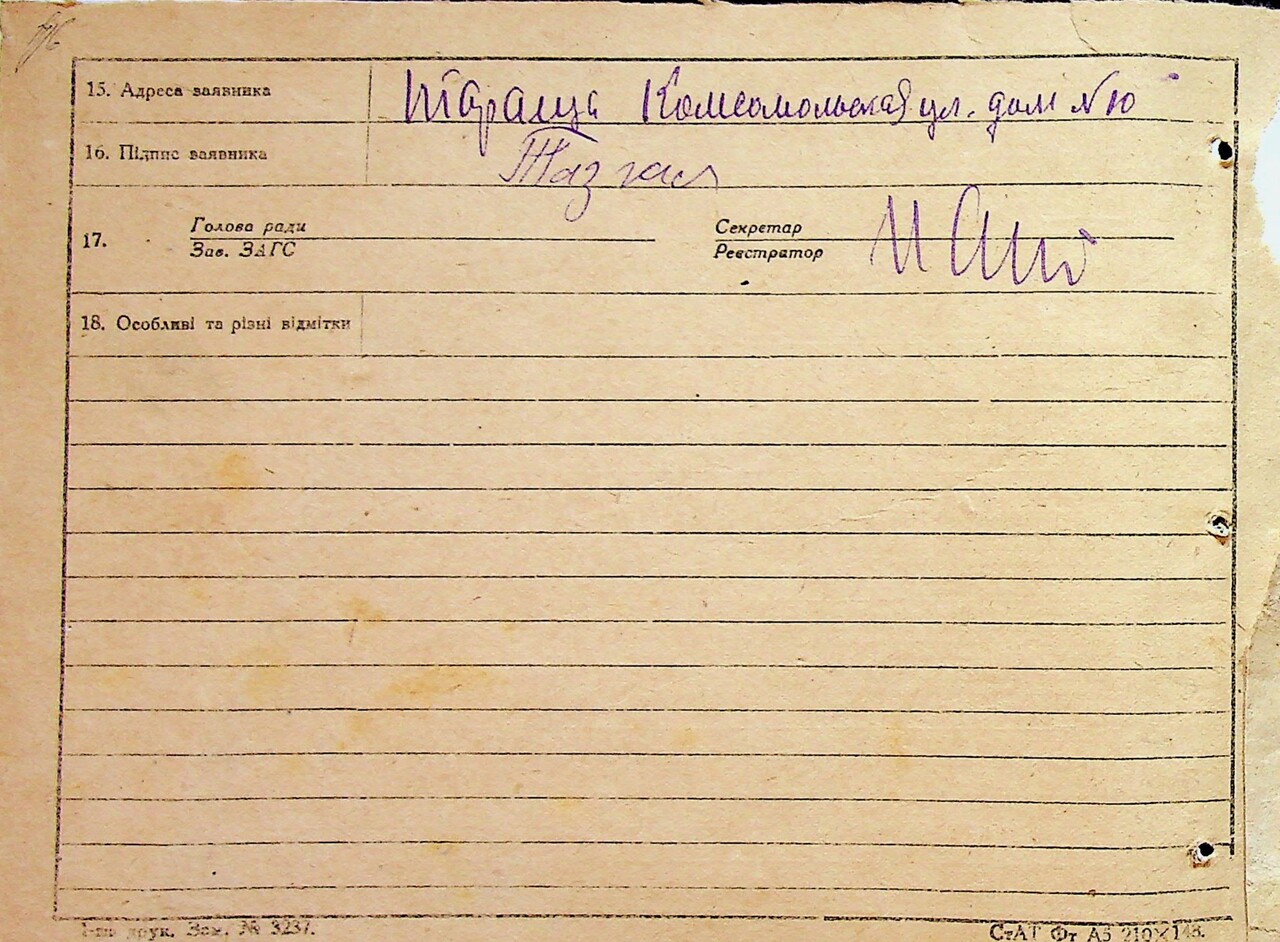 15. Адреса заявника Тараща Комсомольская ул. дом №10
16. Підпис заявника
17. Голова ради Секретар
Зав. ЗАГС Реєстратор
18. Особливі та різні відмітки
друк. Зам. № 3237. СтАТ Фт А5 210×148.